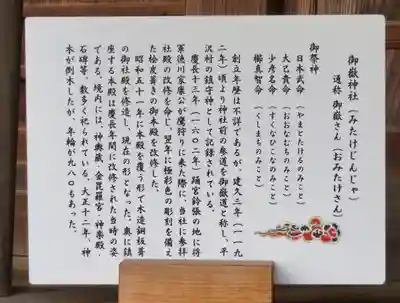 御嶽神社（みたけじんじゃ）
通称 御嶽さん（おみたけさん）
御祭神
日本武命（やまとたけるのみこと）
大己貴命（おおなむちのみこと）
少彦名命（すくなひこなのみこと）
櫛真智命（くしまちのみこと）
創立年歴は不詳であるが、建久三年（一一九
二年）頃より神社前の参道を御嶽道と称し、平
沢村の鎮守神として記録されている。
慶長十三年（一六〇二年）踊宮鈴張の地に将
軍徳川家康公が鷹狩りに来た際に、当社に参拝
社殿の改修を命じ、翌年に極彩色の彫刻を備え
た桧皮葺きの御本殿を改修した。
昭和
年に本殿を覆う形で木造銅板葺
の御社殿を修造し、現在の形となった。奥に鎮
座する本殿は慶長年間に改修された当時の姿
である。境内には、神輿蔵、金毘羅宮、神楽殿、
石碑等、数多く祀られている。大正十三年、神
木が倒木したが、年輪が九八〇もあった。